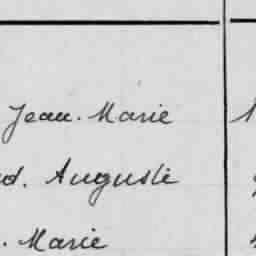 Jean. Marie
d. Auguste
. Marie